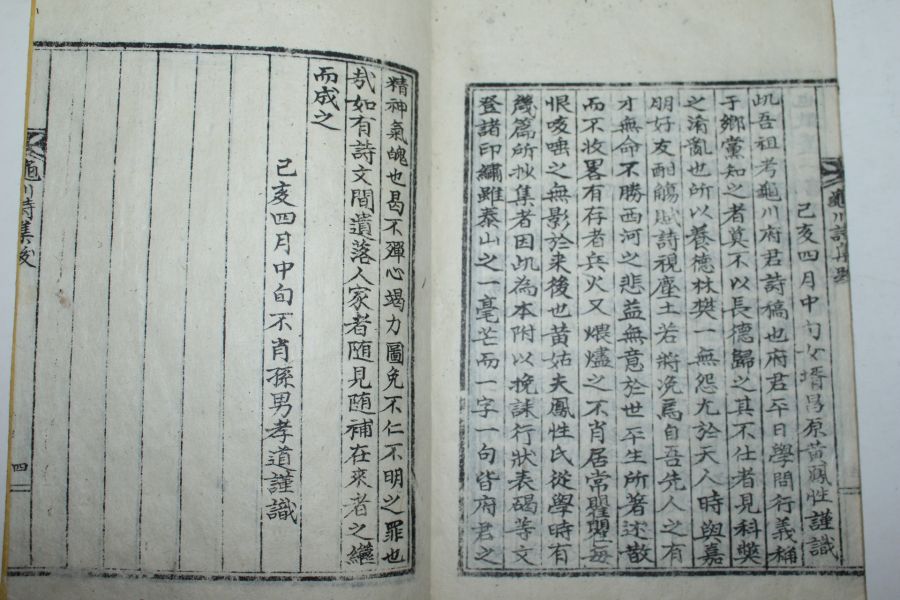 龜川詩集跋
己亥四月中旬女壻昌原黃鳳性謹識
此吾祖考龜川府君詩稿也府君平日學問行義稱
于鄉黨知之者莫不以長德歸之其不仕者見科獘
之淆亂也所以養德林樊一無怨尤於天人時與嘉
朋好友酣觴賦詩視塵土若將浼焉自吾先人之有
才無命不勝西河之悲益無意於世平生所著述散
而不收畧有存者兵火又煨燼之不肖居常瞿瞿每
恨咳唾之無影於来後也黃姑夫鳳性氏從學時有
幾篇所抄集者因此為本附以挽誄行狀表碣等文
登諸印繡雖泰山之一毫芒而一字一句皆府君之
精神氣魄也曷不殫心竭力圖免不仁不明之罪也
哉如有詩文間遺落人家者随見随補在來者之繼
而成之
己亥四月中旬不肖孫男孝道謹識
龜川詩集跋
四